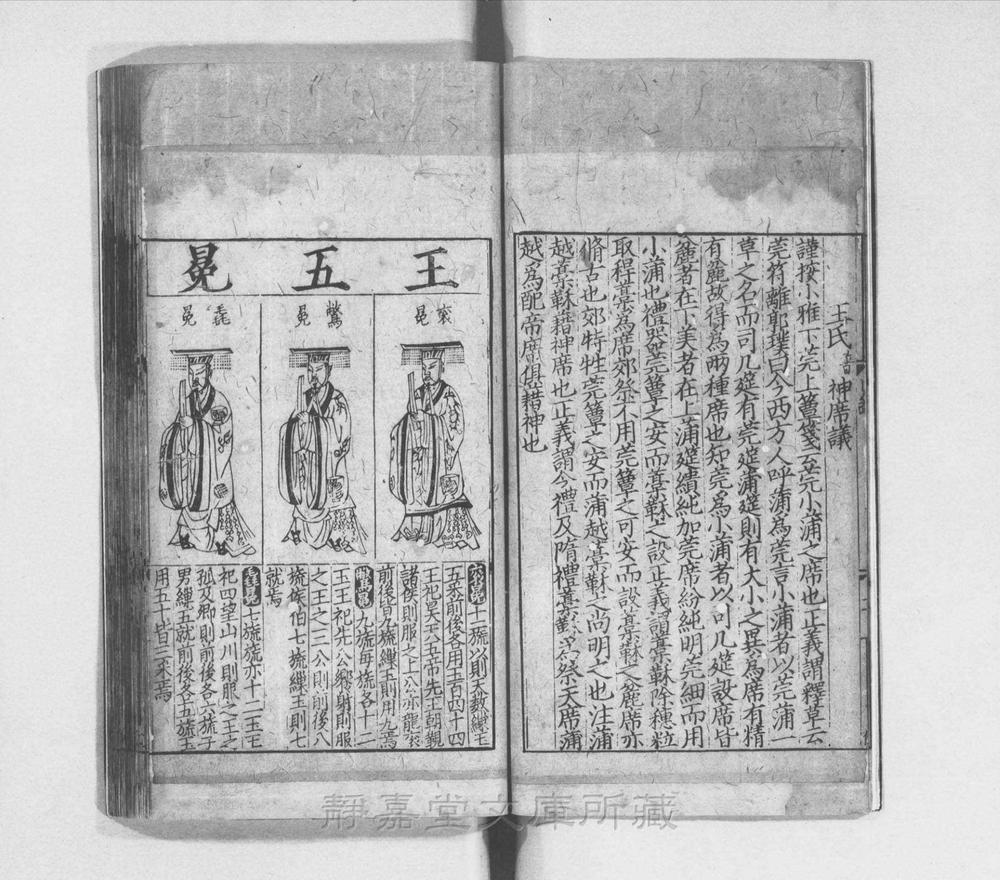 王氏 神席議
謹按小雅下莞上簟箋云莞小蒲之席也正義謂釋草云
莞苻離郭璞曰今西方人呼蒲為莞言小蒲者以莞蒲一
草之名而司几筵有莞筵蒲筵則有大小之異為席有精
有麄故得為兩種席也知莞為小蒲者以司几筵設席皆
麄者在下美者在上蒲筵繢純加莞席紛純明莞細而用
小蒲也禮器莞簟之安而藁鞂之設正義謂藁鞂除穗粒
取稈藁為席郊祭不用莞簟之可安而設藁鞂之麄席亦
脩古也郊特牲莞簟之安而蒲越藁鞂之尚明之也注蒲
越藁鞂藉神席也正義謂今禮及隋禮藁鞂為祭天席蒲
越為配帝席俱藉神也
王五冕
袞冕
鷩冕
毳冕
十二旒以則天數繅玉
五采前後各用玉百四十四
王祀昊天五帝先王朝覲
諸侯則服之上公亦龍袞
前後皆九旒繅玉則用九焉
九旒每旒各十二
玉王祀先公饗射則服
之王之三公則前後八
旒侯伯七旒繅玉則七
就焉
七旒旒亦十二玉王
祀四望山川則服之王之
孤及卿則前後各六旒子
男繅五就前後各五旒玉
用五十皆三采焉
靜嘉堂文庫所藏